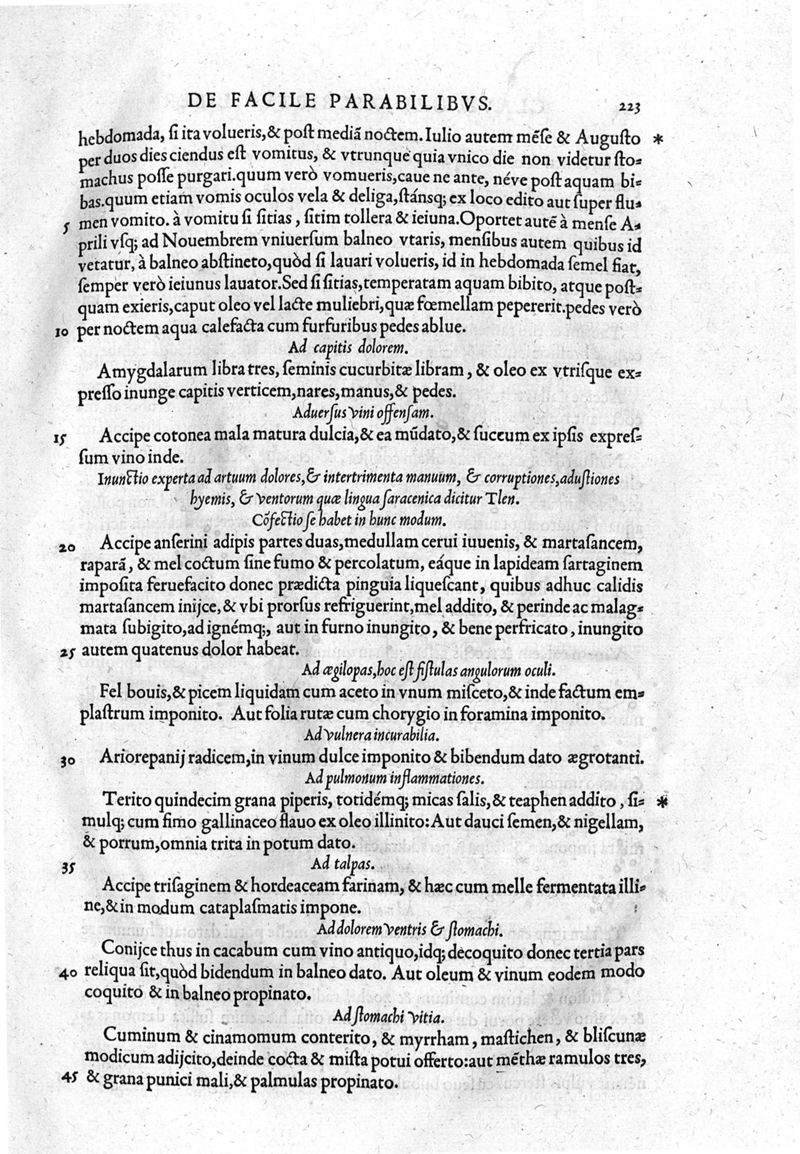 DE FACILE PARABILIBVS. 223
hebdomada, ſi ita volueris,& poſt mediā noctem. Iulio autem mēſe & Auguſto *
per duos dies ciendus eſt vomitus, & vtrunque quia vnico die non videtur ſto=
machus poſſe purgari.quum verò vomueris,caue ne ante, néve poſt aquam bi=
bas.quum etiam vomis oculos vela & deliga,ſtánsq; ex loco edito aut ſuper flu=
5 men vomito. à vomitu ſi ſitias, ſitim tollera & ieiuna.Oportet autē à menſe A=
prili vſq; ad Nouembrem vniuerſum balneo vtaris, menſibus autem quibus id
vetatur, à balneo abſtineto,quòd ſi lauari volueris, id in hebdomada ſemel fiat,
ſemper verò ieiunus lauator.Sed ſi ſitias,temperatam aquam bibito, atque poſt=
quam exieris,caput oleo vel lacte muliebri,quæ fœmellam pepererit.pedes verò
10 per noctem aqua calefacta cum furfuribus pedes ablue.
Ad capitis dolorem.
Amygdalarum libra tres, ſeminis cucurbitæ libram, & oleo ex vtriſque ex=
preſſo inunge capitis verticem,nares,manus,& pedes.
Aduerſus vini offenſam.
15 Accipe cotonea mala matura dulcia,& ea mūdato,& ſuccum ex ipſis expreſ=
ſum vino inde.
Inunctio experta ad artuum dolores,& intertrimenta manuum, & corruptiones,aduſtiones
hyemis, & ventorum quæ lingua ſaracenica dicitur Tlen.
Cōfectio ſe habet in hunc modum.
20 Accipe anſerini adipis partes duas,medullam cerui iuuenis, & martaſancem,
raparā, & mel coctum ſine fumo & percolatum, eáque in lapideam ſartaginem
impoſita feruefacito donec prædicta pinguia liqueſcant, quibus adhuc calidis
martaſancem inijce,& vbi prorſus refriguerint,mel addito, & perinde ac malag=
mata ſubigito,ad ignémq;, aut in furno inungito, & bene perfricato, inungito
25 autem quatenus dolor habeat.
Ad ægilopas,hoc eſt fiſtulas angulorum oculi.
Fel bouis,& picem liquidam cum aceto in vnum miſceto,& inde factum em=
plaſtrum imponito. Aut folia rutæ cum chorygio in foramina imponito.
Ad vulnera incurabilia.
30 Ariorepanij radicem,in vinum dulce imponito & bibendum dato ægrotanti.
Ad pulmonum inflammationes.
Terito quindecim grana piperis, totidémq; micas ſalis,& teaphen addito, ſi= *
mulq; cum fimo gallinaceo flauo ex oleo illinito: Aut dauci ſemen,& nigellam,
& porrum,omnia trita in potum dato.
35 Ad talpas.
Accipe triſaginem & hordeaceam farinam, & hæc cum melle fermentata illi=
ne,& in modum cataplaſmatis impone.
Ad dolorem ventris & ſtomachi.
Conijce thus in cacabum cum vino antiquo,idq; decoquito donec tertia pars
40 reliqua ſit,quòd bidendum in balneo dato. Aut oleum & vinum eodem modo
coquito & in balneo propinato.
Ad ſtomachi vitia.
Cuminum & cinamomum conterito, & myrrham, maſtichen, & bliſcunæ
modicum adijcito,deinde cocta & miſta potui offerto:aut mēthæ ramulos tres,
45 & grana punici mali,& palmulas propinato.